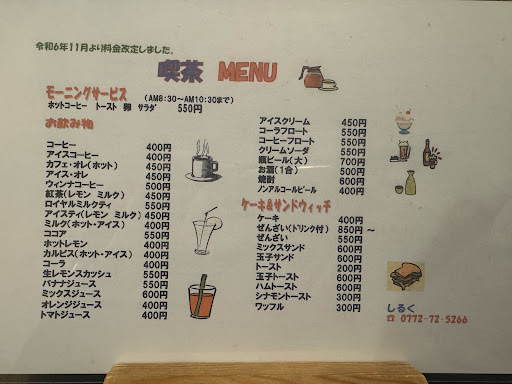 令和6年11月より料金改定しました。
喫茶 MENU
モーニングサービス (AM8:30～AM10:30まで)
ホットコーヒー トースト 卵 サラダ 550円
お飲み物
コーヒー 400円
アイスコーヒー 400円
カフェ・オレ(ホット) 450円
アイス・オレ 450円
ウィンナコーヒー 500円
紅茶(レモン ミルク) 450円
ロイヤルミルクティ 550円
アイスティ(レモン ミルク) 450円
ミルク(ホット・アイス) 400円
ココア 550円
ホットレモン 400円
カルピス(ホット・アイス) 400円
コーラ 400円
生レモンスカッシュ 550円
バナナジュース 550円
ミックスジュース 600円
オレンジジュース 400円
トマトジュース 400円
アイスクリーム 450円
コーラフロート 550円
コーヒーフロート 550円
クリームソーダ 550円
瓶ビール(大) 700円
お酒(1合) 500円
焼酎 600円
ノンアルコールビール 400円
ケーキ&サンドウィッチ
ケーキ 400円
ぜんざい(ドリンク付) 850円～
ぜんざい 550円
ミックスサンド 600円
玉子サンド 550円
トースト 200円
玉子トースト 600円
ハムトースト 600円
シナモントースト 300円
ワッフル 300円
しるく
☎ 0772-72-5266